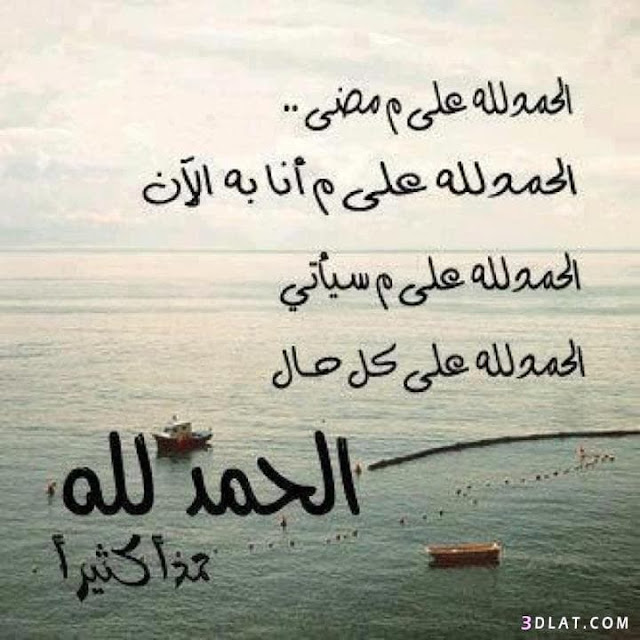 الحمدلله على م مضى ..
الحمدلله على م أنا به الآن
الحمدلله على م سيأتي
الحمدلله على كل حال
الحمد لله
حمداً كثيراً
3DLAT.COM